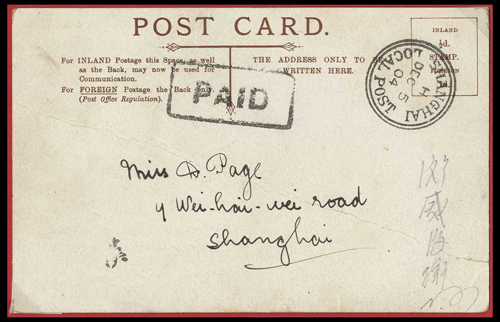 POST CARD.
For INLAND Postage this Space, as well
as the Back, may now be used for
Communication.
For FOREIGN Postage the Back only.
(Post Office Regulation).
THE ADDRESS ONLY TO BE
WRITTEN HERE.
INLAND
½d.
STAMP.
FOREIGN
SHANGHAI
LOCAL POST
H
DEC 5
04
PAID
Miss D. Page
9 Wei-hai-wei road
Shanghai
威海